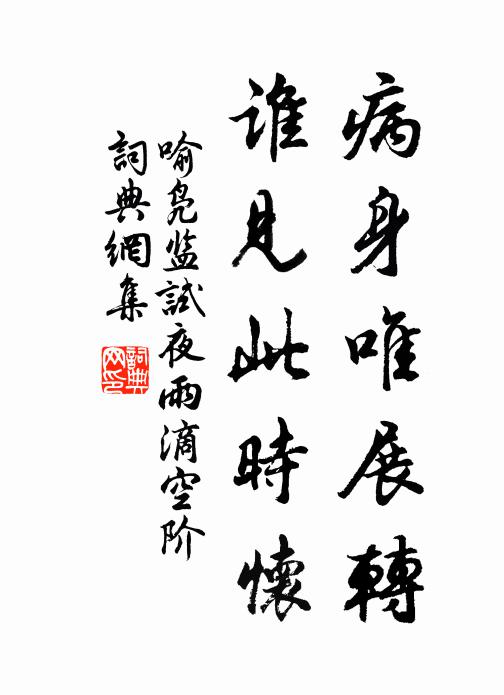 病身唯展轉
誰見此時懷
喻凫监試夜雨滴空阶
詞典網集
詞典网印